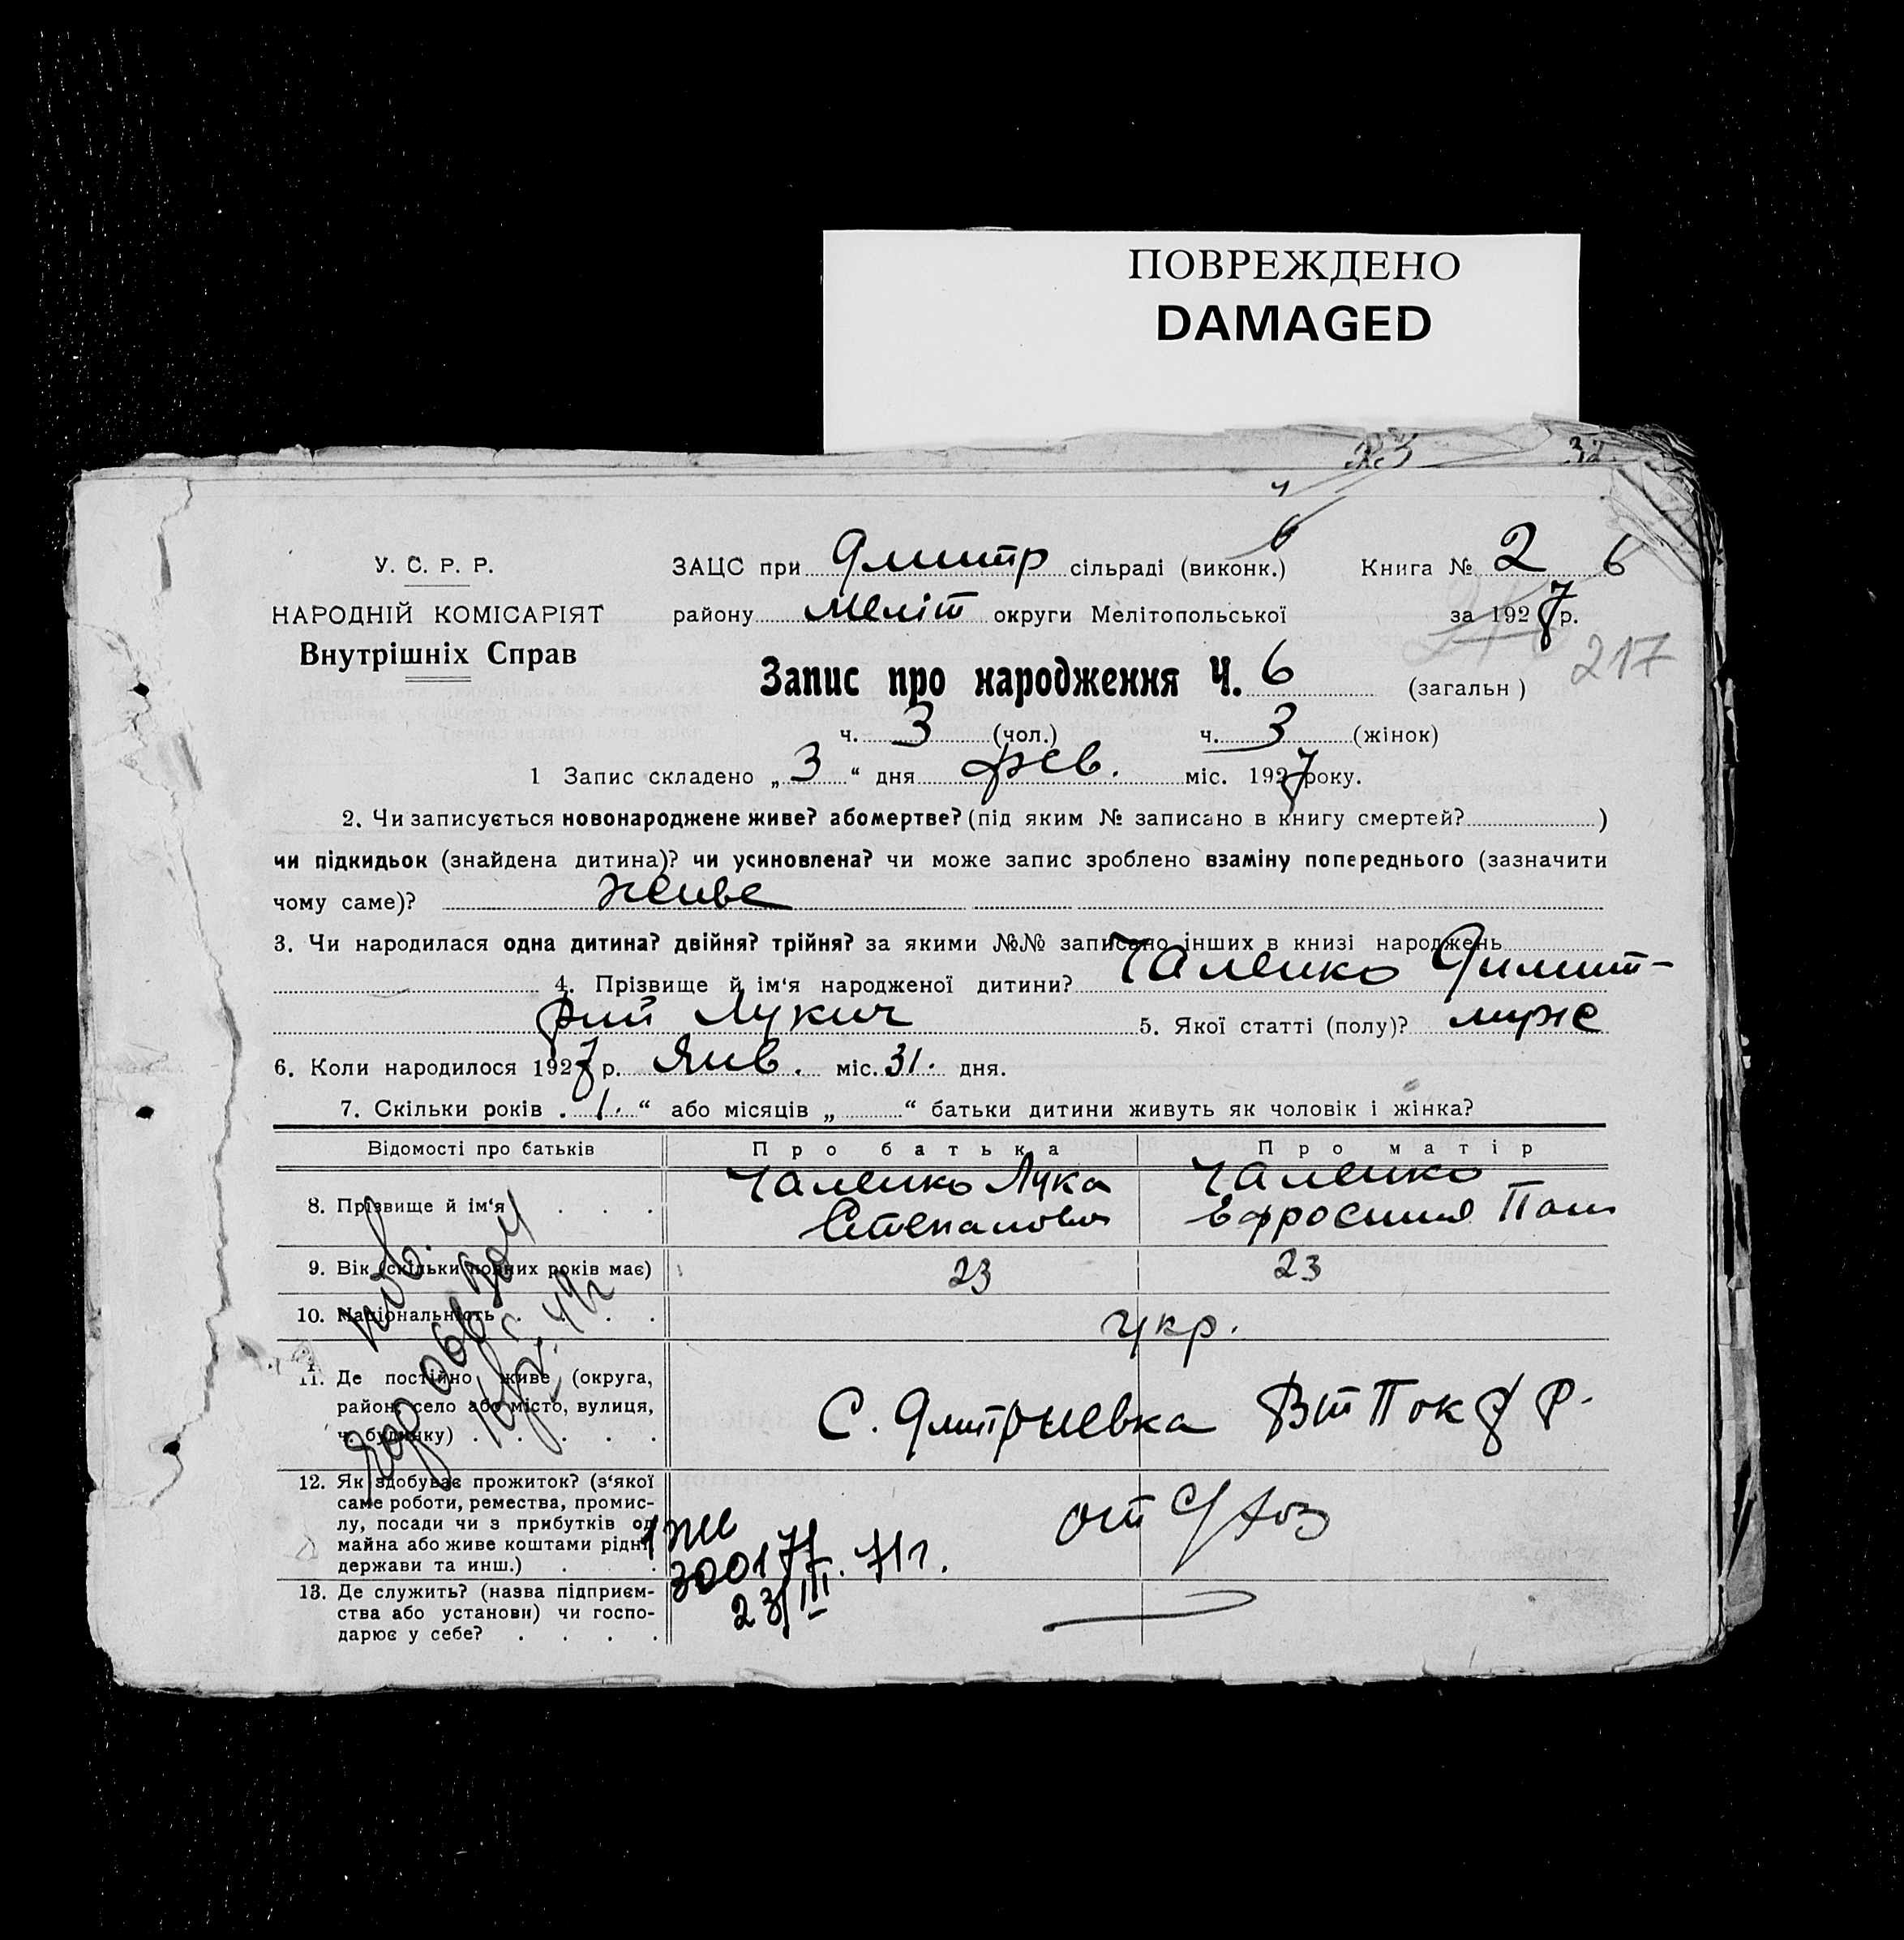 ПОВРЕЖДЕНО
DAMAGED
23 32
У. С. Р. Р.
НАРОДНІЙ КОМІСАРІЯТ
Внутрішніх Справ
6
ЗАЦС при Дмитр сільраді (виконк.) Книга № 2 6
району Меліт округи Мелітопольської за 1927 р.
217
Запис про народження Ч. 6 (загальн)
ч. 3 (чол.) ч. 3 (жінок)
1 Запис складено „ 3 “ дня фев. міс. 1927 року.
2. Чи записується новонароджене живе? або мертве? (під яким № записано в книгу смертей? )
чи підкидьок (знайдена дитина)? чи усиновлена? чи може запис зроблено взаміну попереднього (зазначити
чому саме)? живе
3. Чи народилася одна дитина? двійня? трійня? за якими №№ записано інших в книзі народжень
4. Прізвище й ім‘я народженої дитини? Чаленко Димит-
рий Лукич 5. Якої статті (полу)? муже
6. Коли народилося 1927 р. Янв. міс. 31. дня.
7. Скільки років . 1. “ або місяців „ “ батьки дитини живуть як чоловік і жінка?
Відомості про батьків Про батька Про матір
8. Прізвище й ім‘я . . . Чаленко Лука Степанович Чаленко Ефросиния
9. Вік (скільки повних років має) 23 23
10. Національність . . . . укр.
11. Де постійно живе (округа,
район, село або місто, вулиця,
ч. будинку) . . . . . С. Дмитриевка
12. Як здобуває прожиток? (з‘якої
саме роботи, ремества, промис-
лу, посади чи з прибутків од
майна або живе коштами рідні
держави та инш.) . . от С/хоз
13. Де служить? (назва підприєм-
ства або установи) чи госпо-
дарює у себе? . . . .
300177
23/III. 71г.